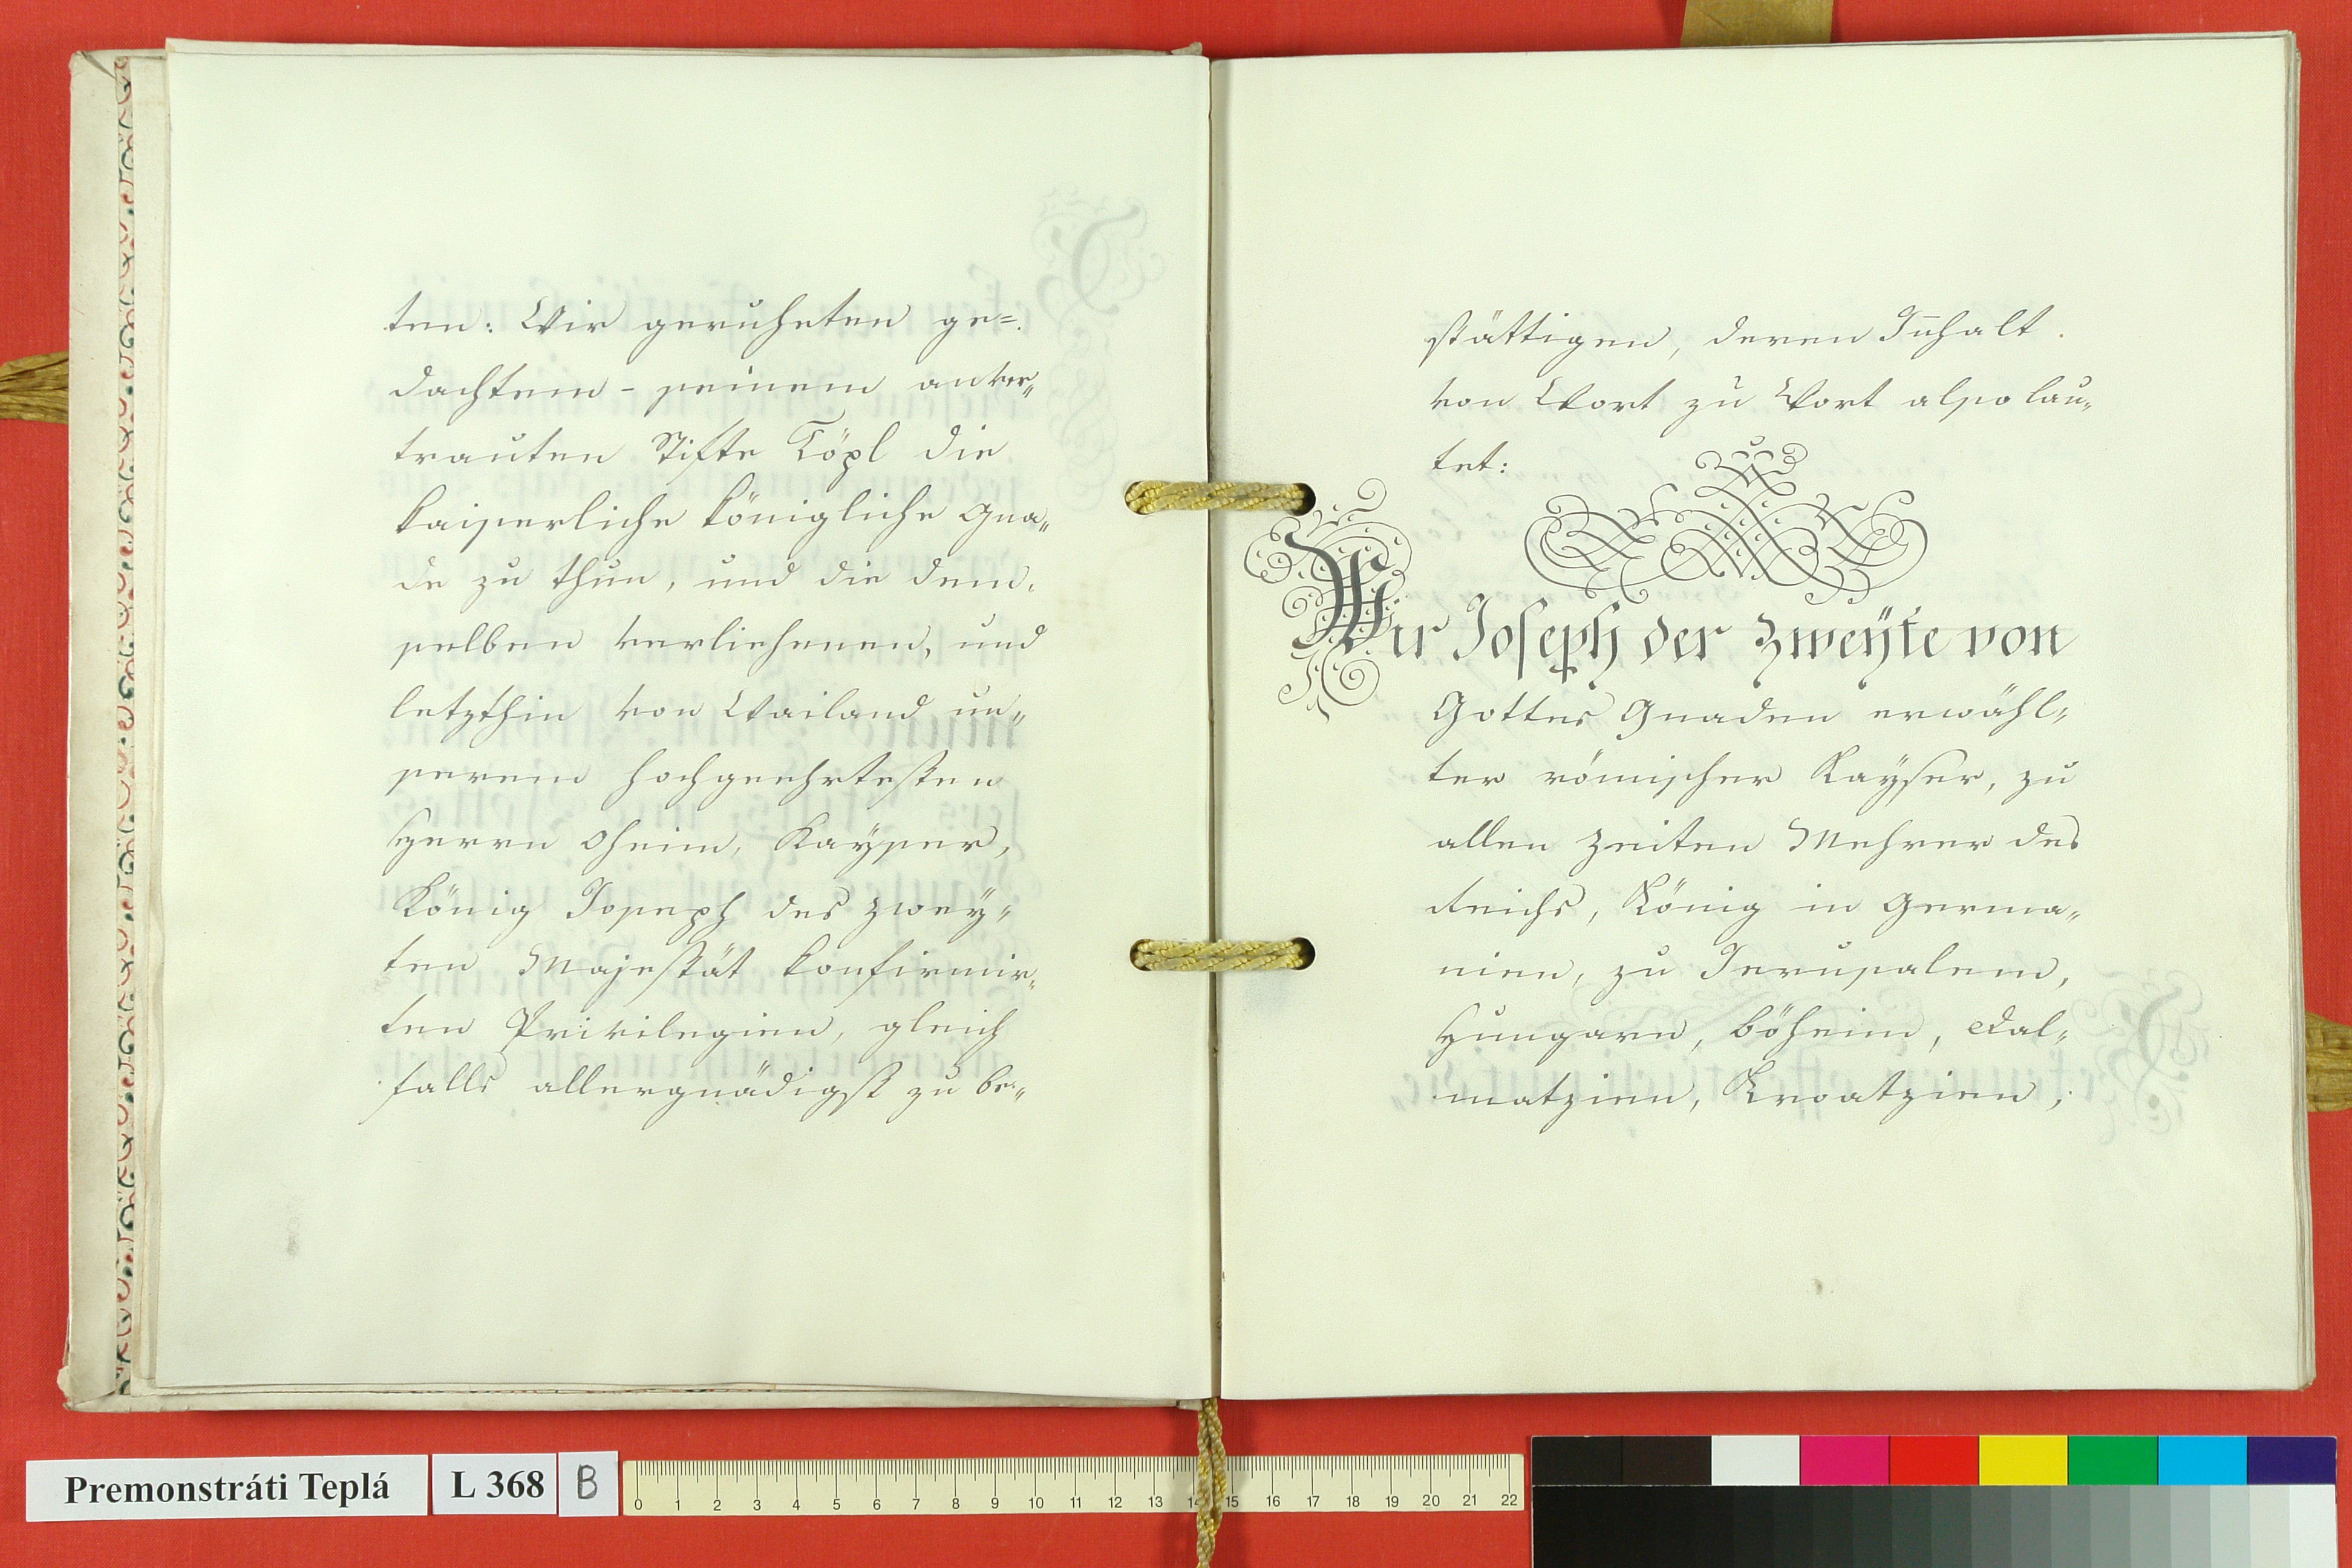 ten: Wir geruheten ge=
dachtem - seinem anver„
trauten Stifte Töpl die
kaiserliche königliche Gna„
de zu thun, und die dem„
selben verliehenen, und
letzthin von Weiland un„
serem hochgeehrtesten
Herrn Oheim, Kayser,
König Joseph des zwey„
ten Majestät konfirmir„
ten Privilegien, gleich
falls allergnädigst zu be„
stättigen, deren Innhalt
von Wort zu Wort also lau„
tet:
Wir Joseph der Zweyte von
Gottes Gnaden erwähl„
ter römischer Kayser, zu
allen Zeiten Mehrer des
Reichs, König in Germa„
nien, zu Jerusalem,
Hungarn, Böheim, Dal„
matzien, Kroatzien,
Premonstráti Teplá L 368 B
0 1 2 3 4 5 6 7 8 9 10 11 12 13 14 15 16 17 18 19 20 21 22